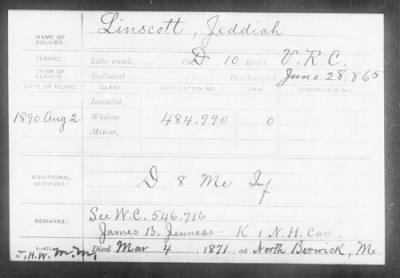 NAME OF SOLDIER: Linscott, Jeddiah
SERVICE: Late rank, Co. D, 10 Reg't V.R.C.
TERM OF SERVICE: Enlisted , 1 Discharged June 28, 1865
DATE OF FILING. CLASS. APPLICATION NO. LAW. CERTIFICATE NO.
Invalid,
1890 Aug 2 Widow, 484.990 0
Minor,
ADDITIONAL SERVICES: D 8 Me Inf
REMARKS: See W.C. 546.716
James B. Jenness K 1 N.H. Cav.
J.H.W. M.M. Died Mar 4 1871, at North Berwick, Me.